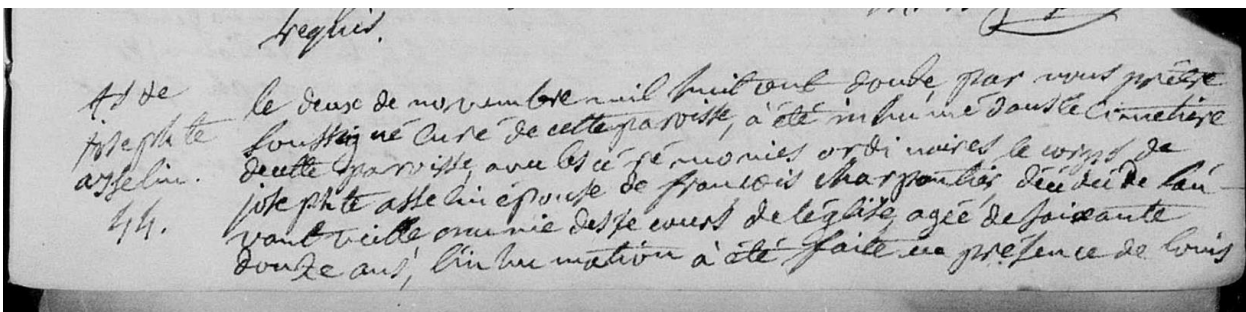 requis.
josephte
asselin.
44.
le deux de novembre mil huit cent douze par nous prêtre
soussigné Curé de cette paroisse, à été inhumé dans le Cimetière
de cette paroisse, avec les cérémonies ordinaires le corps de
josephte asselin épouse de françois Charpentier, décédée de l'au-
vant veille munie des secours de l'église, agée de soixante
douze ans, l'inhumation à été faite en présence de louis